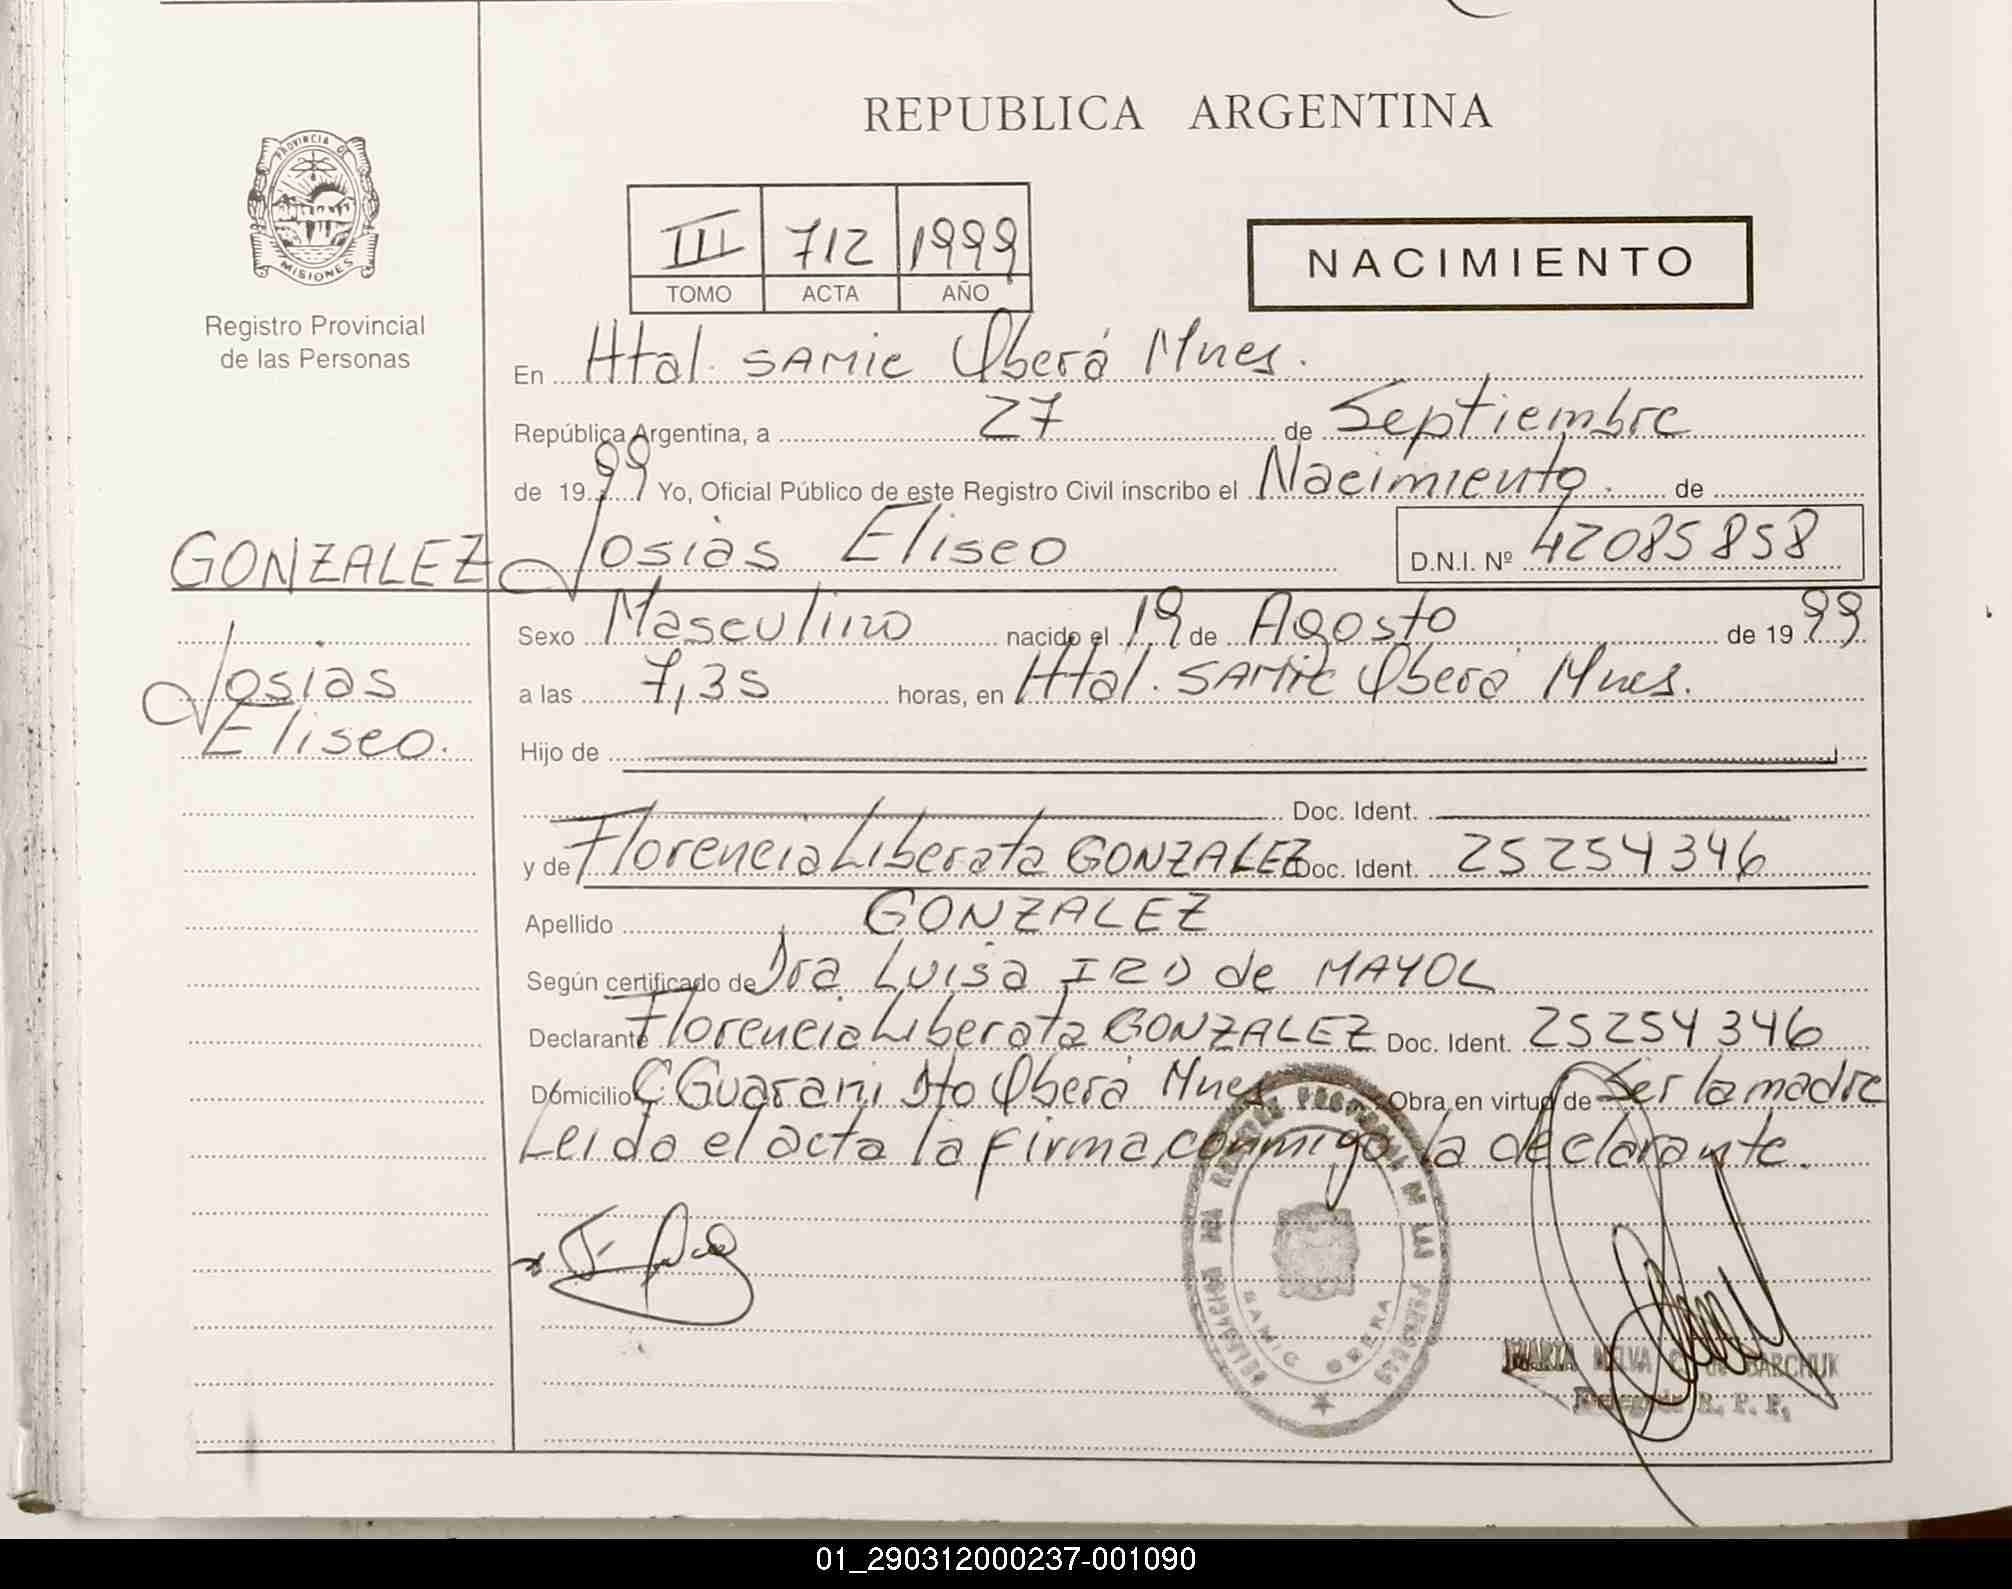 REPUBLICA ARGENTINA
PROVINCIA DE
MISIONES
Registro Provincial
de las Personas
III 712 1999
TOMO ACTA AÑO
NACIMIENTO
En Htal. SAMIC Oberá Mnes.
República Argentina, a 27 de Septiembre
de 19 99 Yo, Oficial Público de este Registro Civil inscribo el Nacimiento. de
GONZALEZ Josias Eliseo D.N.I. Nº 42085858
Sexo Masculino nacido el 19 de Agosto de 19 99
Josias
Eliseo.
a las 7,35 horas, en Htal. SAMIC Oberá Mnes.
Hijo de
Doc. Ident.
y de Florencia Liberata GONZALEZ Doc. Ident. 25254346
Apellido GONZALEZ
Según certificado de Dra. Luisa de MAYOL
Declarante Florencia Liberata GONZALEZ Doc. Ident. 25254346
Domicilio C. Guarani Dto Oberá Mnes Obra en virtud de Ser la madre
Leido el acta la firma conmigo la declarante.
SAMIC OBERA
DE LAS PERSONAS
MARTA BARCHUK
01_290312000237-001090